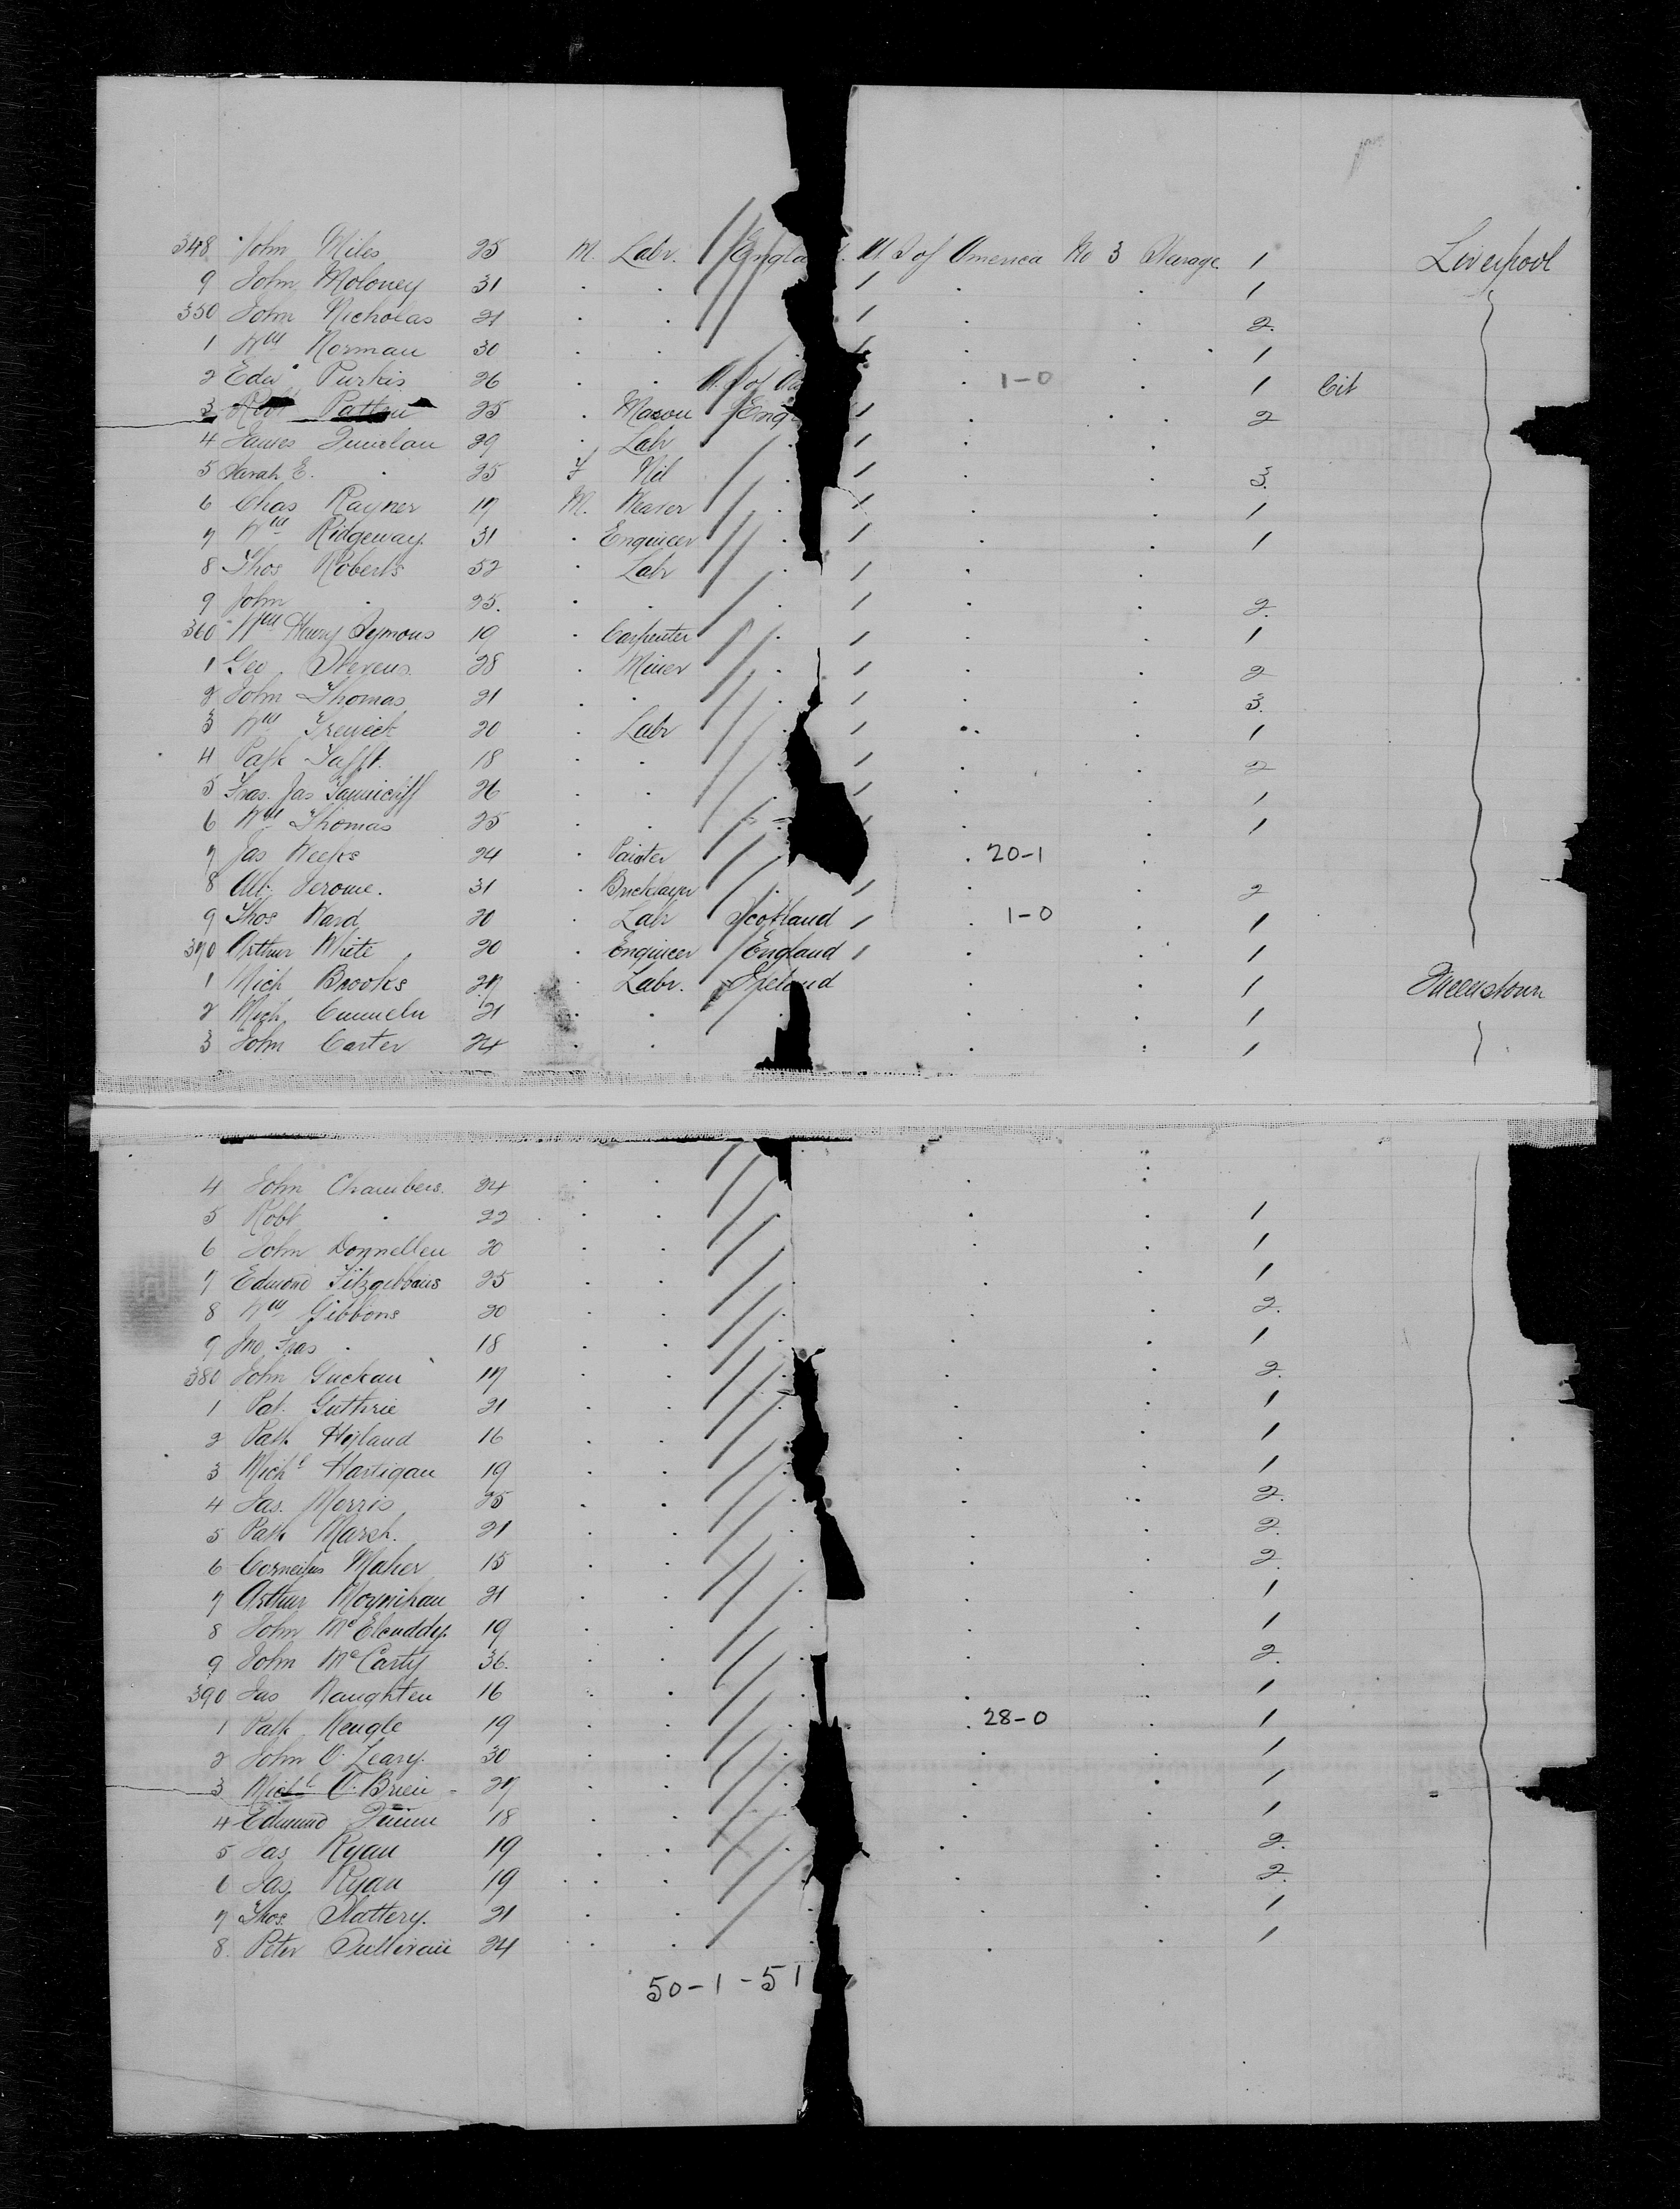 348 John Miles 25 M. Labr. England. U.S of America No 3 Sterage 1 Liverpool
9 John Moloney 31 . . / . . 1
350 John Nicholas 21 . . / . . 2.
1 Wm Norman 30 . . / . . 1
2 Edwd Purkis 26 . . U.S of Am . 1-0 . 1 Cit
3 Robt Patten 25 . Mason Eng / . . 2
4 James Quinlan 29 . Labr / . .
5 Sarah E. . 25 F Nil / . . 3.
6 Chas Rayner 17 M. Weaver / . . 1
7 Wm Ridgeway. 31 . Engineer / . . 1
8 Thos Roberts 52 . Labr / . .
9 John . 25. . . / . . 2.
360 Wm Henry Symons 19 . Carpenter / . . 1
1 Geo. Stevens. 28 . Miner / . . 2
2 John Thomas 21 . . / . . 3.
3 Wm 20 . Labr / . . 1
4 Patk 18 . . / . . 2
5 Fras. Jas 26 . . / . . 1
6 Wm Thomas 25 . . . . 1
7 Jas Weeks 24 . Painter . 20-1 .
8 Alb. Jerome. 31 . Bricklayer / . . 2
9 Thos Ward 20 . Labr Scotland / . 1-0 . 1
370 Arthur White 20 . Engineer England / . . 1
1 Mich Brooks 27 . Labr. Ireland . . 1 Queenstown
2 Mich. 21 . . . . 1
3 John Carter 24 . . . : 1
4 John Chambers. 24 . . . .
5 Robt . 22 . . . . 1
6 John Donnellen 20 . . . . 1
7 Edmond Fitzgibbons 25 . . . . 1
8 Wm Gibbons 20 . . . . 2.
9 Jno Fras . 18 . . . . 1
380 John Guckan 17 . . . . 2.
1 Pat. Guthrie 21 . . . . 1
2 Patk Hyland 16 . . . . 1
3 Michl Hartigan 19 . . . . 1
4 Jas. Morris 25 . . . . 2.
5 Patk Marsh. 21 . . . . 2.
6 Cornelius Maher 15 . . . . 2.
7 Arthur Moynihan 21 . . . . 1
8 John McElcuddy. 19 . . . . 1
9 John McCarty 36. . . . . 2.
390 Jas Naughten 16 . . . . 1
1 Patk Neugle 19 . . . 28-0 . 1
2 John O'Leary. 30 . . . . 1
3 Michl O'Brien 27 . . . . 1
4 Edmund Quinn 18 . . . . 1
5 Jas Ryan 19 . . . . 2.
6 Jas Ryan 19 . . . . 2.
7 Thos. Slattery. 21 . . . 1
8. Peter Sullivan 24 . . . . 1
50-1-51